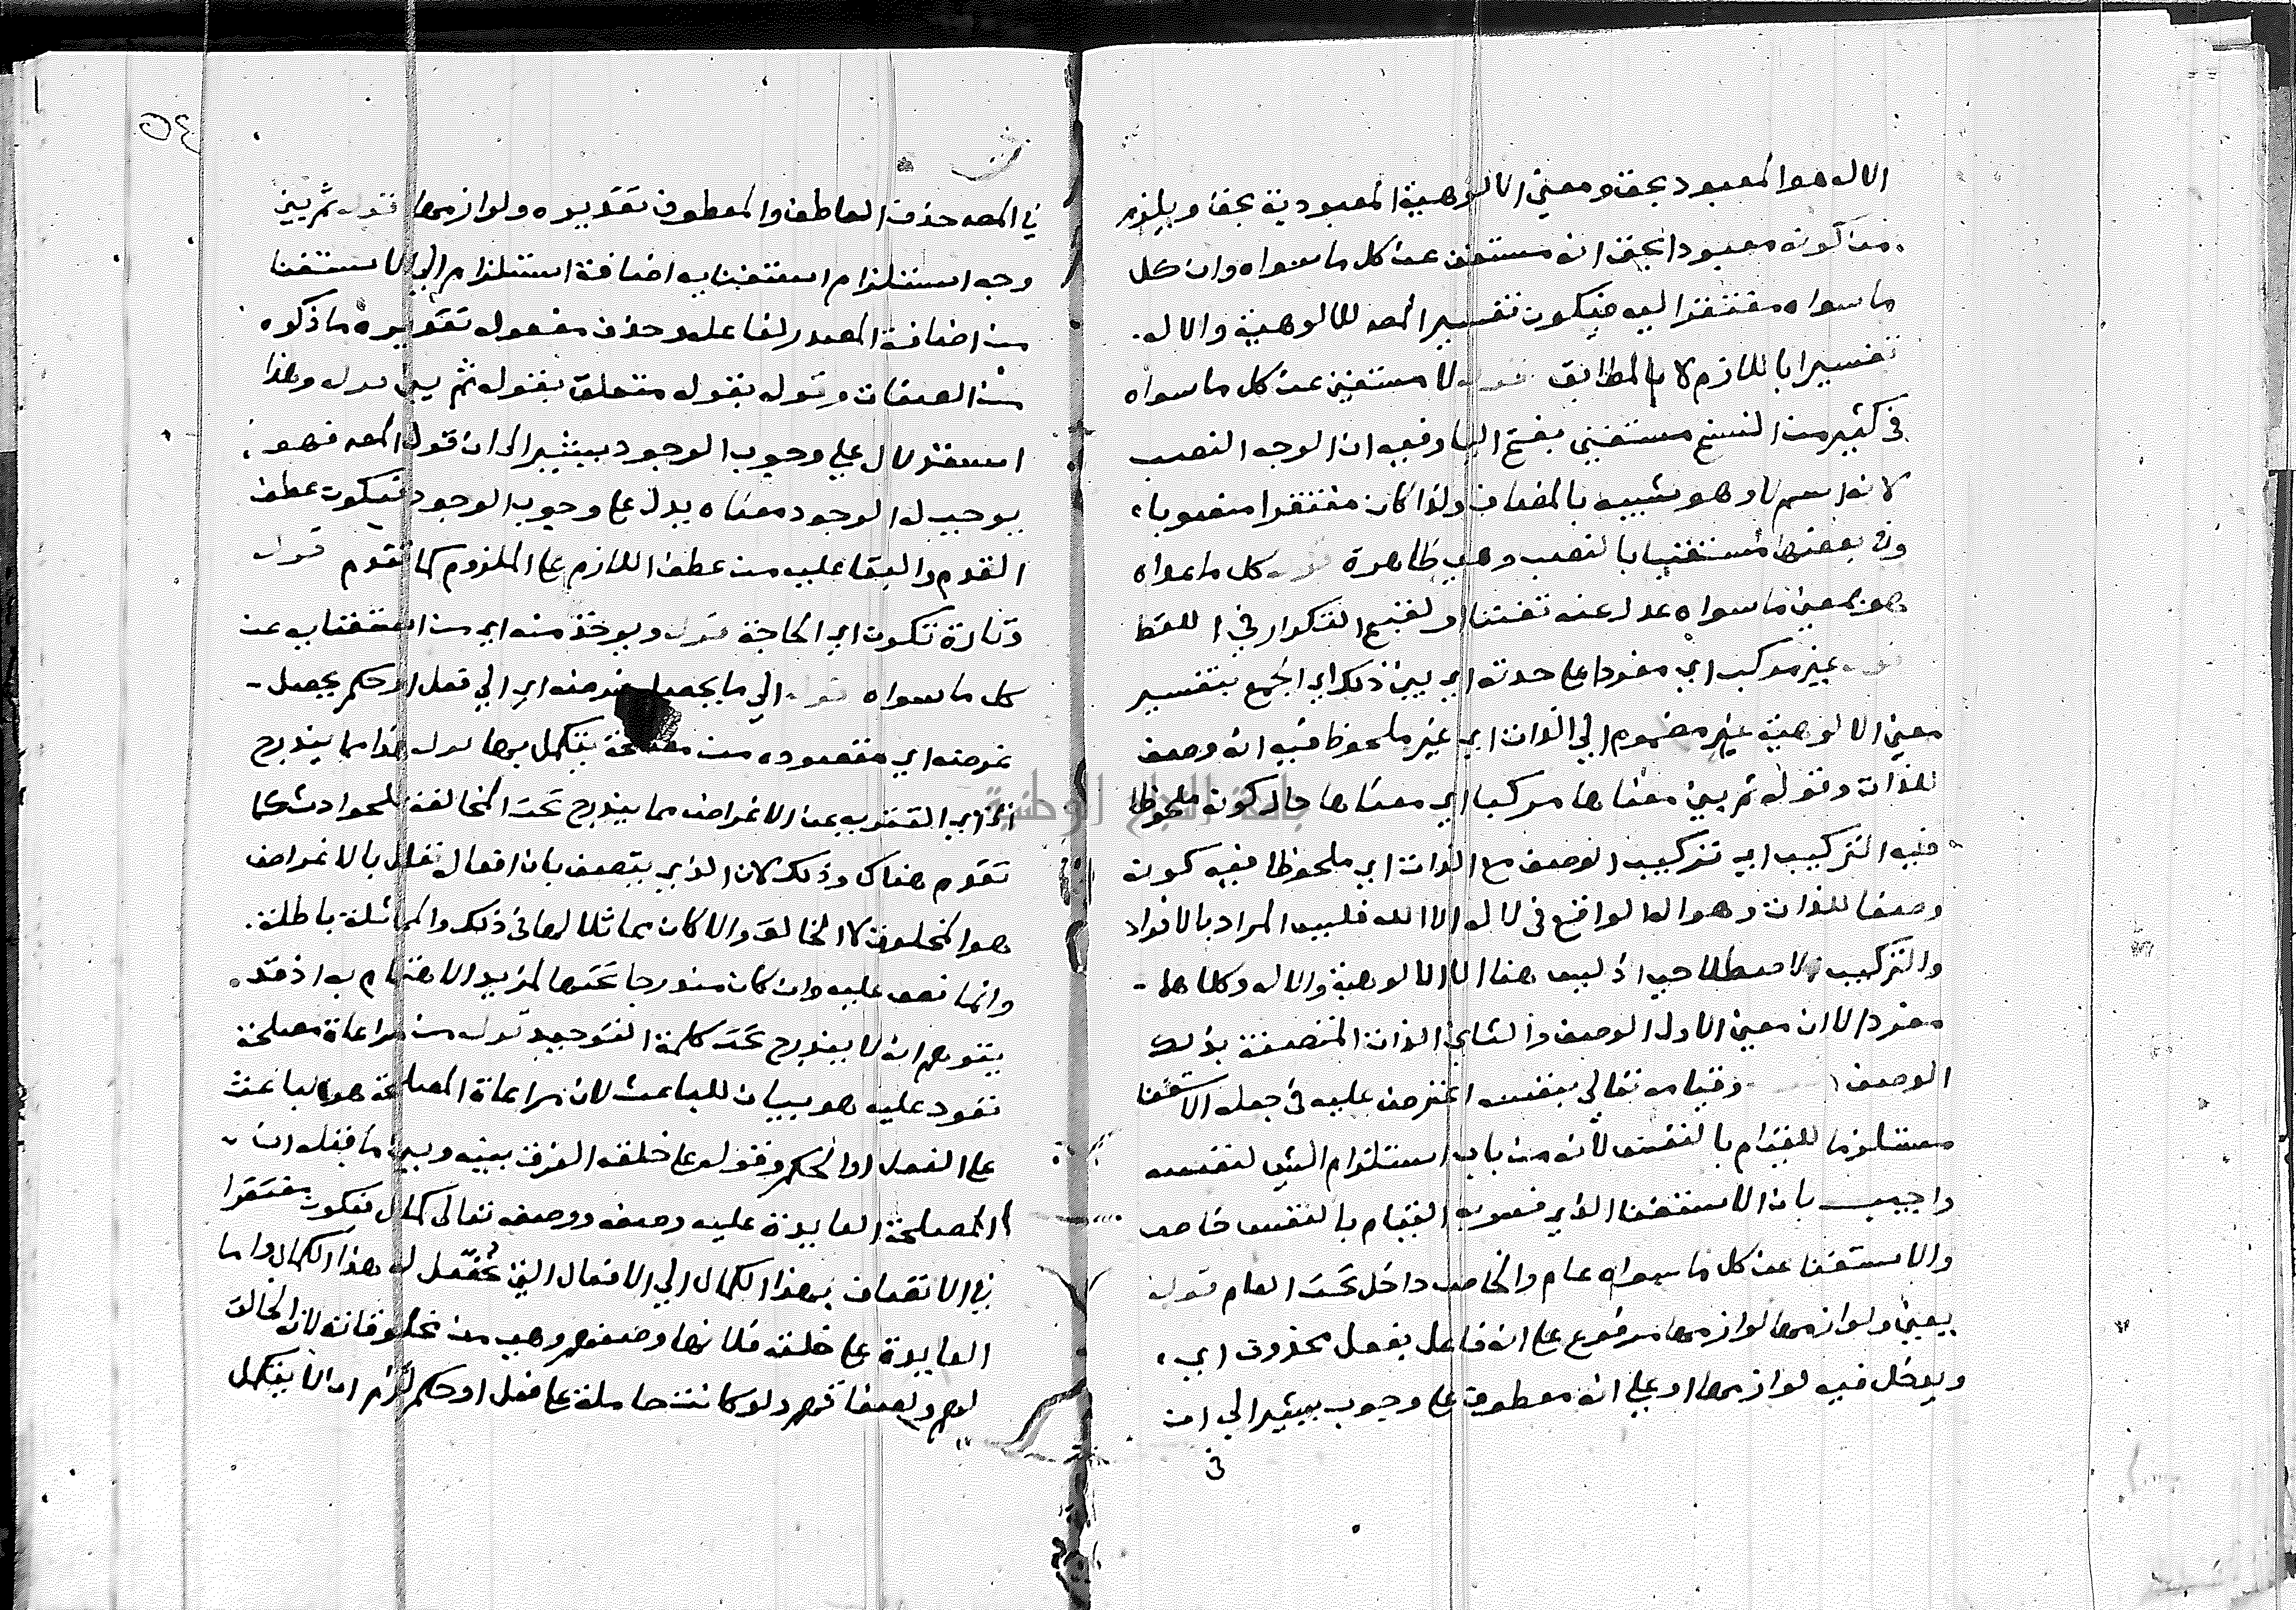 الاله هو المعبود بحق ومعني الالوهية المعبودية بحق ويلزم
من كونه معبودا بحق انه مستغن عن كل ما سواه وان كل
ما سواه مفتقرا اليه فيكون تفسير المص للالوهية والاله
تفسيرا باللازم لا بالمطابق قوله لا مستغني عن كل ما سواه
في كثير من النسخ مستغني بفتح اليا وفيه ان الوجه النصب
لانه اسم لا وهو شبيه بالمضاف ولذا كان مفتقرا منصوبا
وفي بعضها مستغنيا بالنصب وهي ظاهرة قوله كل ما عداه
هو بمعني ما سواه عدل عنه تفننا ولقبح التكرار في اللفظ
قوله غير مركب اي مفردا علي حدته اي بين ذلك اي الجمع بتفسير
معني الالوهية غير مضموم الي الذات اي غير ملحوظ فيه انه وصف
للذات وقوله ثم بين معناها مركبا اي معناها حال كونه ملحوظا
فيه التركيب اي تركيب الوصف مع الذات اي ملحوظا فيه كونه
وصفا للذات وهو اله الواقع في لا اله الا الله فليس المراد بالافراد
والتركيب الاصطلاحي اذ ليس هنا الا الالوهية والاله وكلاهما
مفرد الا ان معني الاول الوصف والثاني الذات المتصفة بذلك
الوصف وقيامه تعالي بنفسه اعترض عليه في جعله الاستغنا
مستلزما للقيام بالنفس لأنه من باب استلزام الشي لنفسه
واجيب بان الاستغنا الذي فسر به القيام بالنفس خاص
والاستغنا عن كل ما سواه عام والخاص داخل تحت العام قوله
يعني ولوازمها لوازمها مرفوع علي انه فاعل بفعل محذوف اي
ويدخل فيه لوازمها او علي انه معطوف علي وجوب يشير الي ان
في
٥٤
في المص حذف العاطف والمعطوف تقديره ولوازمها قوله ثم بين
وجه استلزام استغنايه اضافة استلزام الي الاستغنا
من اضافة المصدر لفاعله وحذف مفعوله تقديره ما ذكره
من الصفات وقوله بقوله متعلق بقوله ثم بين قوله وهذا
استدلال علي وجوب الوجود يشير الي ان قول المص فهو
يوجب له الوجود معناه يدل علي وجوب الوجود فيكون عطف
القدم والبقا عليه من عطف اللازم علي الملزوم كما تقدم قوله
وتارة تكون اي الحاجة قوله ويوخذ منه اي من استغنايه عن
كل ما سواه قوله الي ما يحصل غرضه اي الي فعل او حكم يحصل
غرضه اي مقصوده من مصلحة يتكمل بها قوله هذا مما يندرج
الخ اي التنزيه عن الاغراض مما يندرج تحت المخالفة للحوادث كما
تقدم هناك وذلك لان الذي يتصف بان افعاله تعلل بالاغراض
هو المخلوق لا الخالق والا كان مماثلا لها في ذلك والمماثلة باطلة
وانما نص عليه وان كان مندرجا تحتها لمزيد الاهتمام به اذ قد
يتوهم انه لا يندرج تحت كلمة التوحيد قوله من مراعاة مصلحة
تعود عليه هو بيان للباعث لان مراعاة المصلحة هو الباعث
علي الفعل او الحكم وقوله علي خلقه الفرق بينه وبين ما قبله ان
المصلحة العايدة عليه وصفه ووصفه تعالي كمال فيكون مفتقرا
في الاتصاف بهذا الكمال الي الافعال التي تحصل له هذا الكمال واما
العايدة علي خلقه فلانها وصفهم وهي من مخلوقاته لان الخالق
لهم ولصفاتهم ولو كانت حاملة علي فعل او حكم للزم ان لا يتكمل